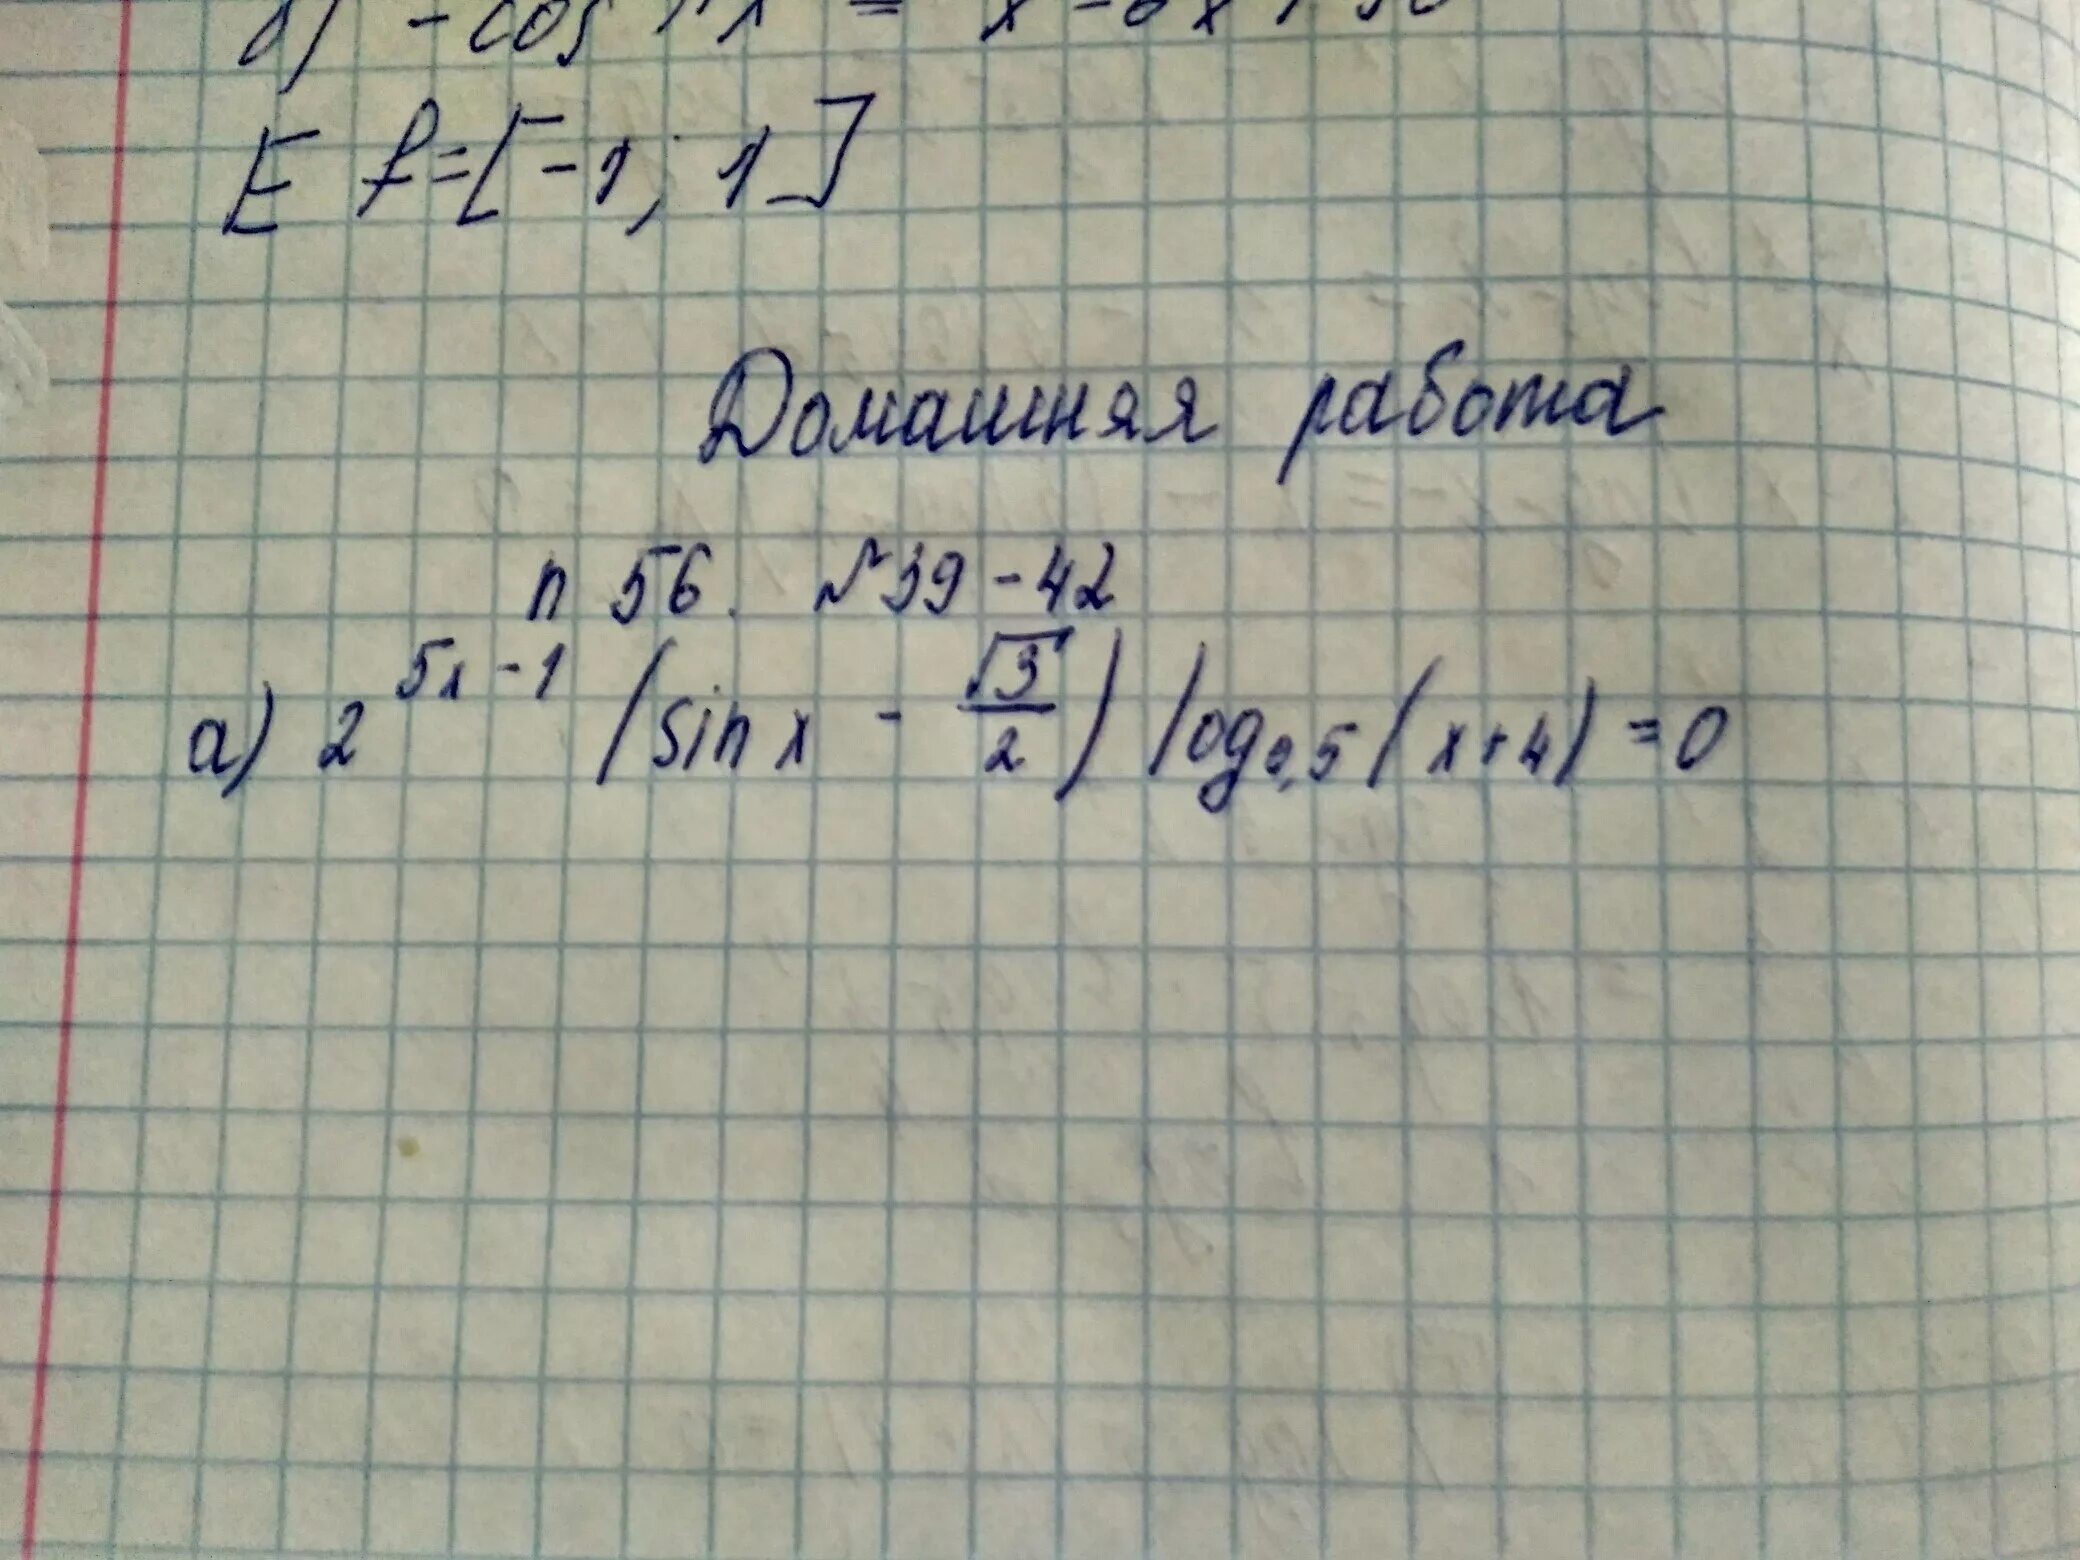 - cos
E f = [-1; 1]
Домашняя работа
п 56. №39-42
а) 2^(5x-1) (sin x - √3/2) log₀,₅(x+4) = 0